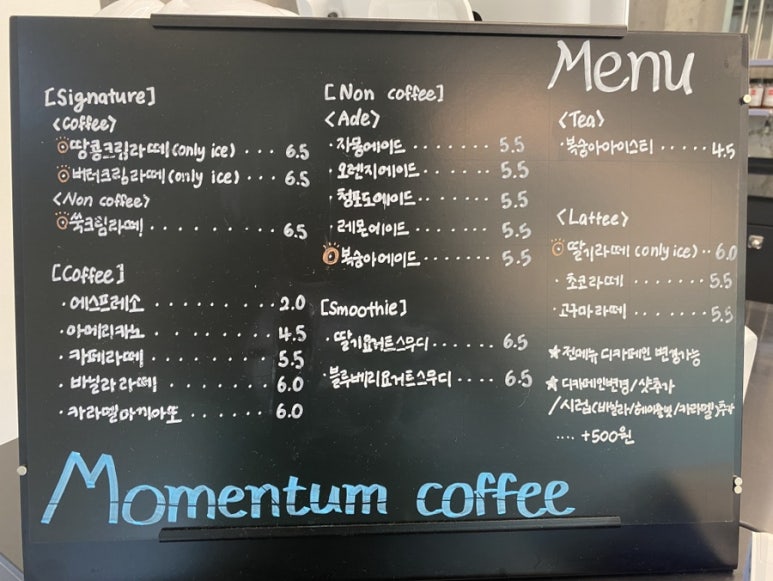 Menu
[Signature]
<Coffee>
땅콩크림라떼(only ice) ... 6.5
버터크림라떼(only ice) ... 6.5
<Non coffee>
쑥크림라떼 ........ 6.5
[Coffee]
· 에스프레소 ......... 2.0
· 아메리카노 ......... 4.5
· 카페라떼 .......... 5.5
· 바닐라 라떼 ........ 6.0
· 카라멜마끼아또 ....... 6.0
[Non coffee]
<Ade>
· 자몽에이드 ....... 5.5
· 오렌지에이드 ...... 5.5
· 청포도에이드 ...... 5.5
레몬에이드 ....... 5.5
복숭아에이드 ...... 5.5
[Smoothie]
· 딸기요거트스무디 ..... 6.5
· 블루베리요거트스무디 .... 6.5
<Tea>
· 복숭아아이스티 ..... 4.5
<Lattee>
딸기라떼(only ice) .. 6.0
· 초코라떼 ....... 5.5
· 고구마라떼 ...... 5.5
★ 전메뉴 디카페인 변경가능
★ 디카페인변경/샷추가
/시럽(바닐라/헤이즐넛/카라멜)추가
.... +500원
Momentum coffee